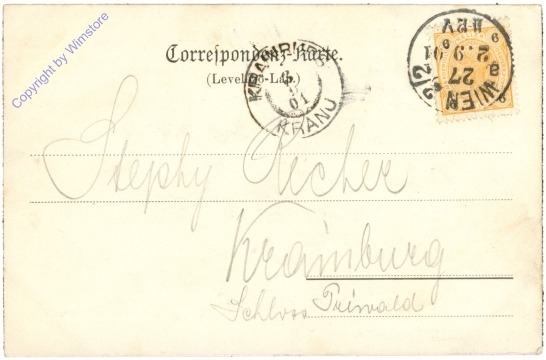 Copyright by Wimstore
Correspondenz-Karte.
(Levelező-Lap.)
KRAINBURG
KRANJ
WIEN 2/2
27
2.9.01
Stephy Recher
Krainburg
Schloss